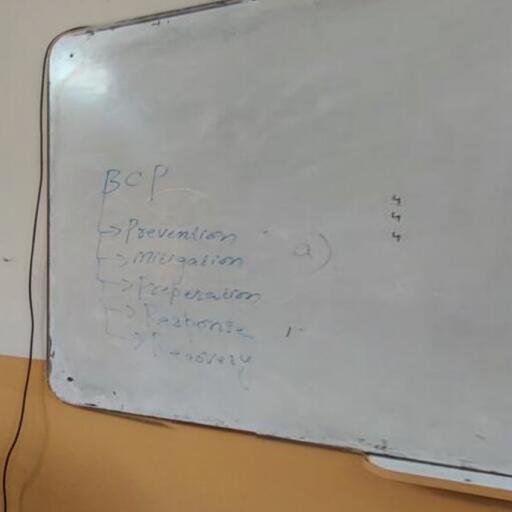 BCP
→ Prevention
→ Mitigation
→ Preperation
→ Response
→ Recovery
a)
4
4
4